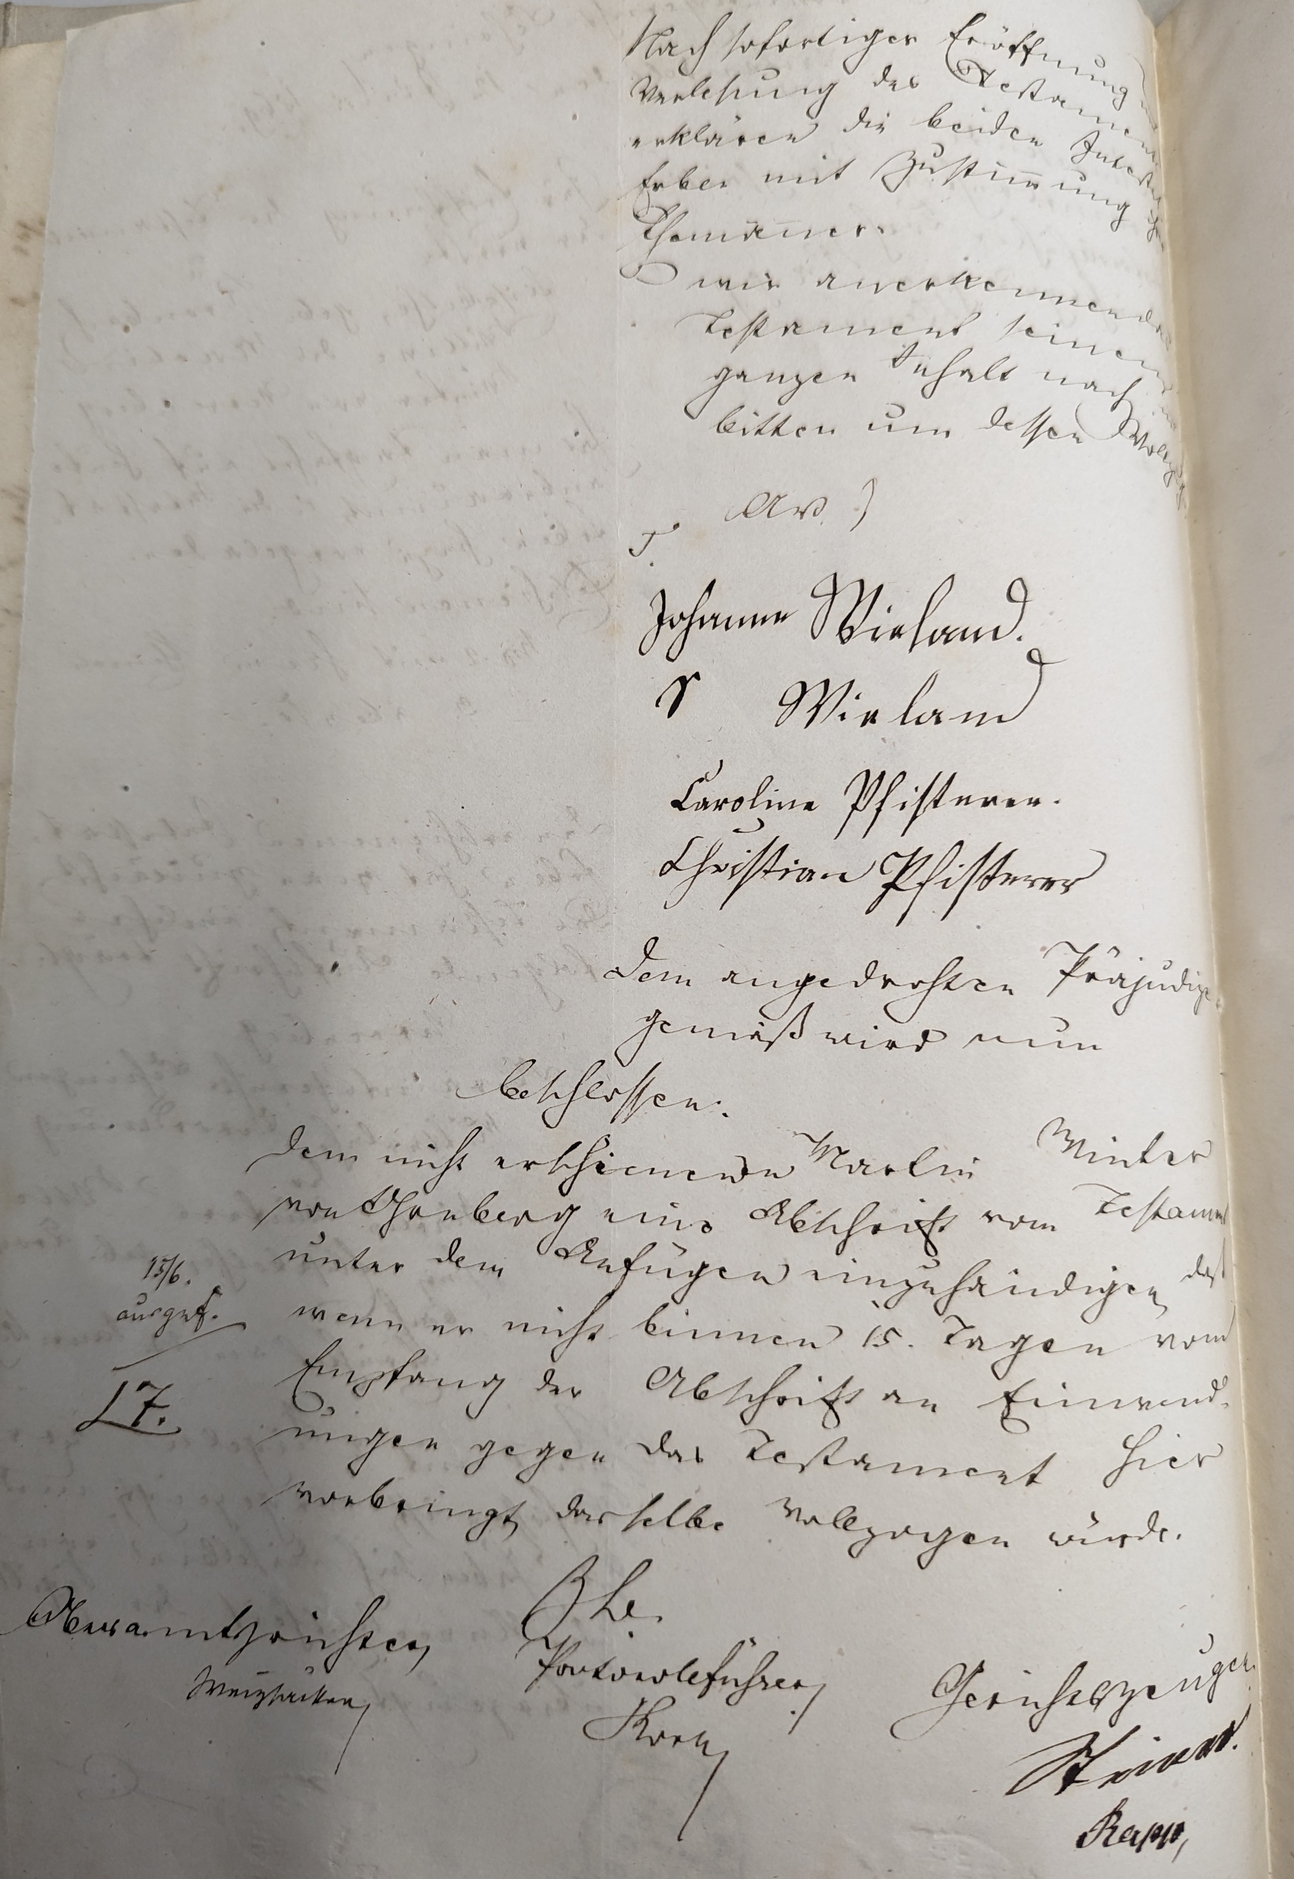 Nach sofortiger Eröffnung
Verlesung des Testaments
erklären die beiden Intestat
Erben mit Zustimmung
Ehemänner.
wir anerkennen das
Testament seinem
ganzen Inhalt nach
bitten um dessen Vollzug
T.
Johanne Wieland.
Wieland
Caroline Pfisterer.
Christian Pfisterer
Dem angedrohten Präjudize
gemäß wird nun
beschlossen:
dem nicht erschienenen Martin Winter
von eine Abschrift vom Testament
unter dem Anfügen einzuhändigen, daß
15/6.
ausgef.
wenn er nicht binnen 15. Tagen vom
Empfang der Abschrift an Einwend-
17.
ungen gegen das Testament hier
vorbringt, dasselbe vollzogen würde.
Oberamtsrichter,
Protocollführer,
Korn,
Gerichtszeugen
Rapp,